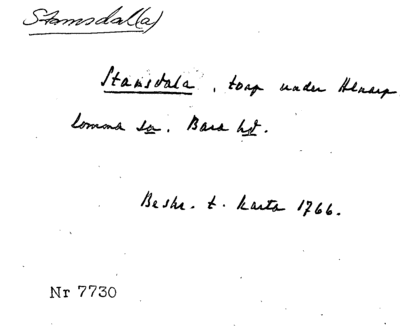 Stamsdal(a)
Stamsdala, torp under Alnarp
Lomma sn. Bara hd.
Beskr. t. karta 1766.
Nr 7730